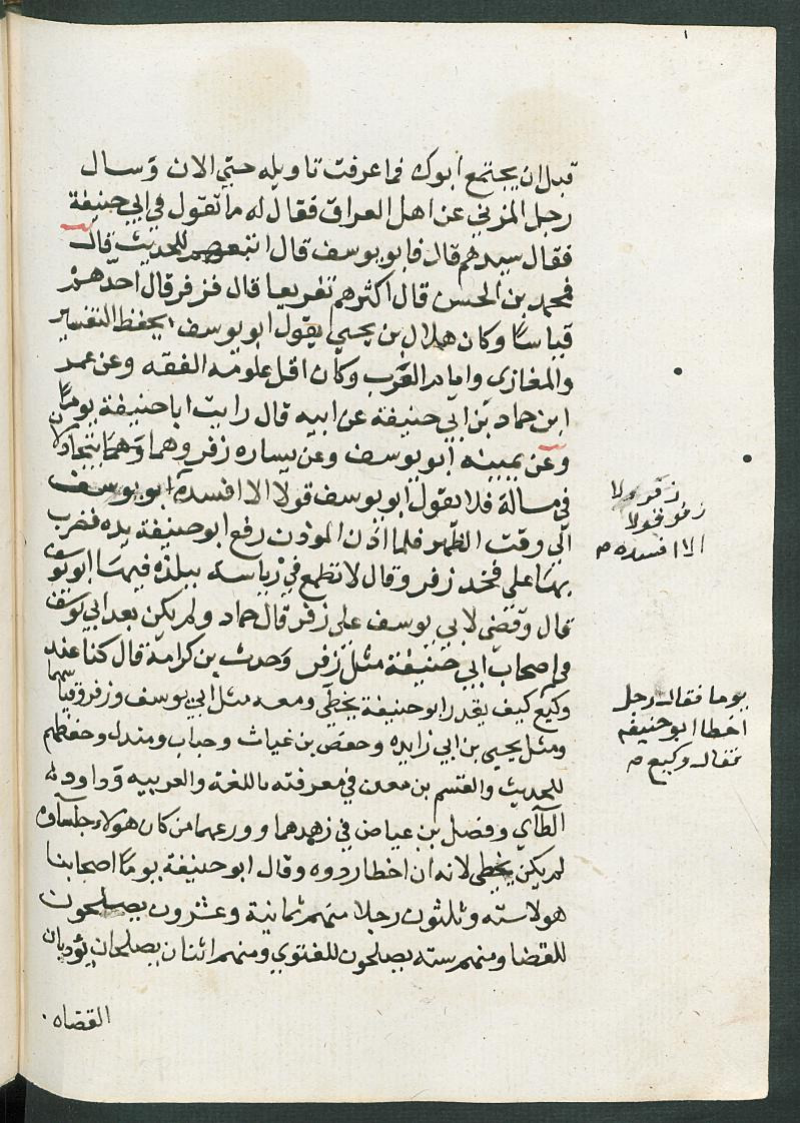 قبل ان يجتمع ابوك فما عرفت تاويله حتي الان وسال
رجل المزني عن اهل العراق فقال له ما تقول في ابي حنيفة
فقال سيدهم قال فابو يوسف قال اتبعهم للحديث قال
فمحمد بن الحسن قال اكثرهم تفريعا قال فزفر قال احدهم
قياسا وكان هلال بن يحيي يقول ابو يوسف يحفظ التفسير
والمغازي وايام العرب وكان اقل علومه الفقه وعن عمر
ابن حماد بن ابي حنيفة عن ابيه قال رايت ابا حنيفة يوما
وعن يمينه ابو يوسف وعن يساره زفر وهما وهما يتجادلان
في مسالة فلا يقول ابو يوسف قولا الا افسده ابو يوسف
الي وقت الظهر فلما اذن الموذن رفع ابو حنيفة يده فضرب
بها علي فخذ زفر وقال لا تطمع في رياسة ببلدة فيها ابو يوسف
قال وقضي لابي يوسف علي زفر قال حماد ولم يكن بعد ابي يوسف
في اصحاب ابي حنيفة مثل زفر وحدث بن كرامة قال كنا عند
وكيع كيف يقدر ابو حنيفة يخطي ومعه مثل ابي يوسف وزفر وقياسهما
ومثل يحيي بن ابي زايده وحفص بن غياث وحباب ومندل وحفظهم
للحديث والقسم بن معن في معرفته باللغة والعربيه وداود
الطآي وفضل بن عياض في زهدهما وورعهما من كان هولاء جلسآوه
لم يكن يخطي لانه ان اخطا ردوه وقال ابو حنيفة يوما اصحابنا
هولا سته وثلثون رجلا منهم ثمانية وعشرون يصلحون
للقضا ومنهم سته يصلحون للفتوي ومنهم اثنان يصلحان يؤدبان
القضاه
زفر ولا
زفر قولا
الا افسده
يوما فقال رجل
اخطا ابو حنيفه
فقال وكيع
١